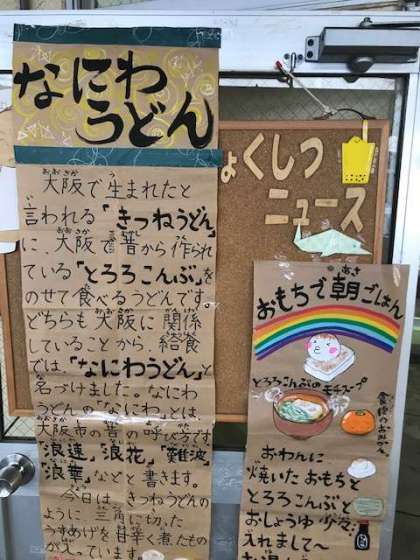 なにわ
うどん
大阪で生まれたと
言われる「きつねうどん」
に、大阪で昔から作られ
ている「とろろこんぶ」を
のせて食べるうどんです。
どちらも大阪に関係
していることから給食
では「なにわうどん」と
名づけました。なにわ
うどんの「なにわ」とは、
大阪市の昔の呼び方で
「浪速」「浪花」「難波」
「浪華」などと書きます。
今日は、きつねうどんの
ように三角に切った
うすあげを甘辛く煮たもの
が入っています。
ょくしつ
ニュース
おもちで朝ごはん
とろろこんぶのモチスープ
おわんに
焼いたおもちと
とろろこんぶと
おしょうゆ少々
入れまして〜